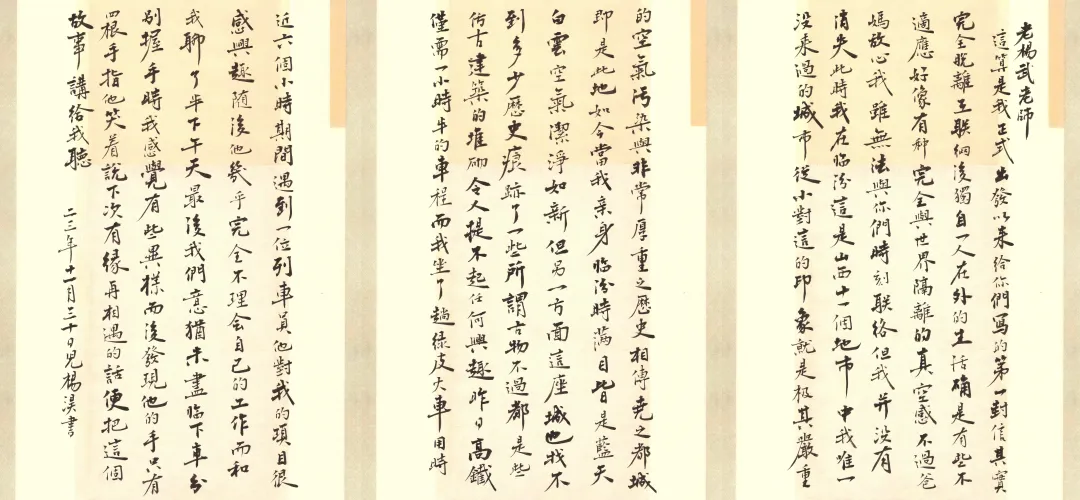 老楊武老師
這算是我正式出發以來給你們寫的第一封信其實
完全脫離互聯網後獨自一人在外的生活确是有些不
適應好像有种完全與世界隔離的真空感不過爸
媽放心我雖無法與你們時刻聯络但我并沒有
消失此時我在临汾這是山西十一個地市中我唯一
没来過的城市從小對這的印象就是极其嚴重
的空氣污染與非常厚重之歷史相傳堯之都城
即是此地如今當我亲身临汾時滿目皆是藍天
白雲空氣潔淨如新但另一方面這座城也找不
到多少歷史痕跡了一些所謂古物不過都是些
仿古建築的堆砌令人提不起任何興趣昨日高鐵
僅需一小時半的車程而我坐了趟绿皮火車用時
近六個小時期間遇到一位列車員他對我的項目很
感興趣随後他幾乎完全不理會自己的工作而和
我聊了半下午天最後我們意猶未盡临下車分
别握手時我感覺有些異樣而後發現他的手只有
四根手指他笑着說下次有緣再相遇的話便把這個
故事講给我聽
二三年十一月三十日兒楊淏書